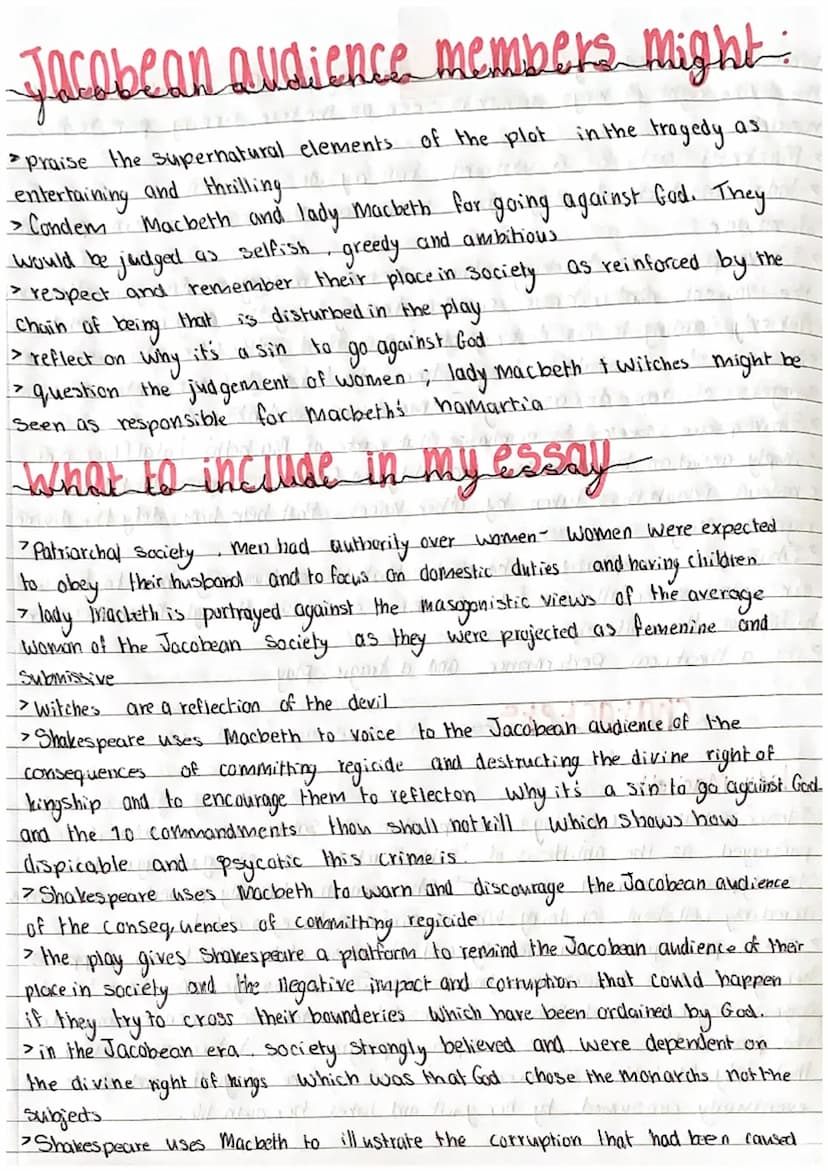 Jacobean audience members might:
> praise the supernatural elements of the plot in the tragedy as
entertaining and thrilling
> Condem Macbeth and lady Macbeth for going against God. They
would be judged as selfish, greedy and ambitious
> respect and remember their place in society as reinforced by the
chain of being that is disturbed in the play
> reflect on why it's a sin to go against God
> question the judgement of women; lady macbeth + witches might be
seen as responsible for Macbeth's hamartia
What to include in my essay
> Patriarchal society, men had authority over women- women were expected
to obey their husband and to focus on domestic duties and having children
> lady Macbeth is portrayed against the masogonistic views of the average
woman of the Jacobean society as they were projected as femenine and
submissive
> witches are a reflection of the devil
> Shakespeare uses Macbeth to voice to the Jacobean audience of the
consequences of committing regicide and destructing the divine right of
kingship and to encourage them to reflect on why it's a sin to go against God
and the 10 commandments thou shall not kill which shows how
dispicable and psycotic this crime is
> Shakespeare uses Macbeth to warn and discourage the Jacobean audience
of the consequences of committing regicide
> the play gives Shakespeare a platform to remind the Jacobean audience of their
place in society and the negative impact and corruption that could happen
if they try to cross their bounderies which have been ordained by God.
> in the Jacobean era, society strongly believed and were dependent on
the divine right of kings which was that God chose the monarchs not the
subjects
> Shakespeare uses Macbeth to illustrate the corruption that had been caused